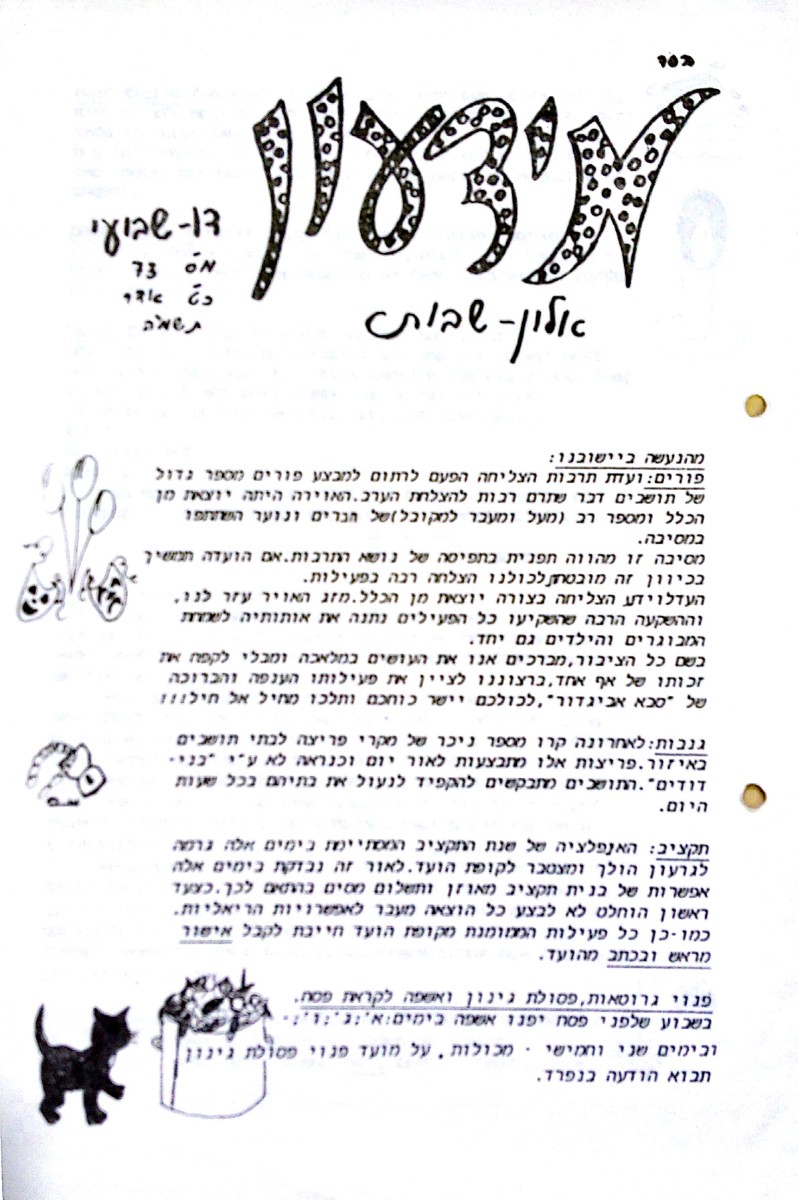 בסד
מידעון
דו-שבועי
מס 73
כט אדר
תשמ"ה
אלון-שבות
מהנעשה ביישובנו:
פורים:ועדת תרבות הצליחה הפעם לרתום למבצע פורים מספר גדול
של תושבים דבר שתרם רבות להצלחת הערב.האוירה היתה יוצאת מן
הכלל ומספר רב (מעל ומעבר למקובל)של חברים ונוער השתתפו
במסיבה.
מסיבה זו מהווה תפנית בתפיסה של נושא התרבות.אם הועדה תמשיך
בכיוון זה מובטחת לכולנו הצלחה רבה בפעילות.
העדלוידע הצליחה בצורה יוצאת מן הכלל.מזג האויר עזר לנו,
וההשקעה הרבה שהשקיעו כל הפעילים נתנה את אותותיה לשמחת
המבוגרים והילדים גם יחד.
בשם כל הציבור,מברכים אנו את העושים במלאכה ומבלי לקפח את
זכותו של אף אחד,ברצוננו לציין את פעילותו הענפה והברוכה
של "סבא אביגדור",לכולכם יישר כוחכם ותלכו מחיל אל חיל!!!
גנבות:לאחרונה קרו מספר ניכר של מקרי פריצה לבתי תושבים
באיזור.פריצות אלו מתבצעות לאור יום וכנראה לא ע"י "בני-
דודים".התושבים מתבקשים להקפיד לנעול את בתיהם בכל שעות
היום.
תקציב: האנפלציה של שנת התקציב המסתיימת בימים אלה גרמה
לגרעון הולך ומצטבר לקופת הועד.לאור זה נבדקת בימים אלה
אפשרות של בנית תקציב מאוזן ותשלום מסים בהתאם לכך.כצעד
ראשון הוחלט לא לבצע כל הוצאה מעבר לאפשרויות הריאליות.
כמו-כן כל פעילות הממומנת מקופת הועד חייבת לקבל אישור
מראש ובכתב מהועד.
פנוי גרוטאות,פסולת גינון ואשפה לקראת פסח.
בשבוע שלפני פסח יפנו אשפה בימים:א';ג';ו';-
ובימים שני וחמישי - מכולות, על מועד פנוי פסולת גינון
תבוא הודעה בנפרד.